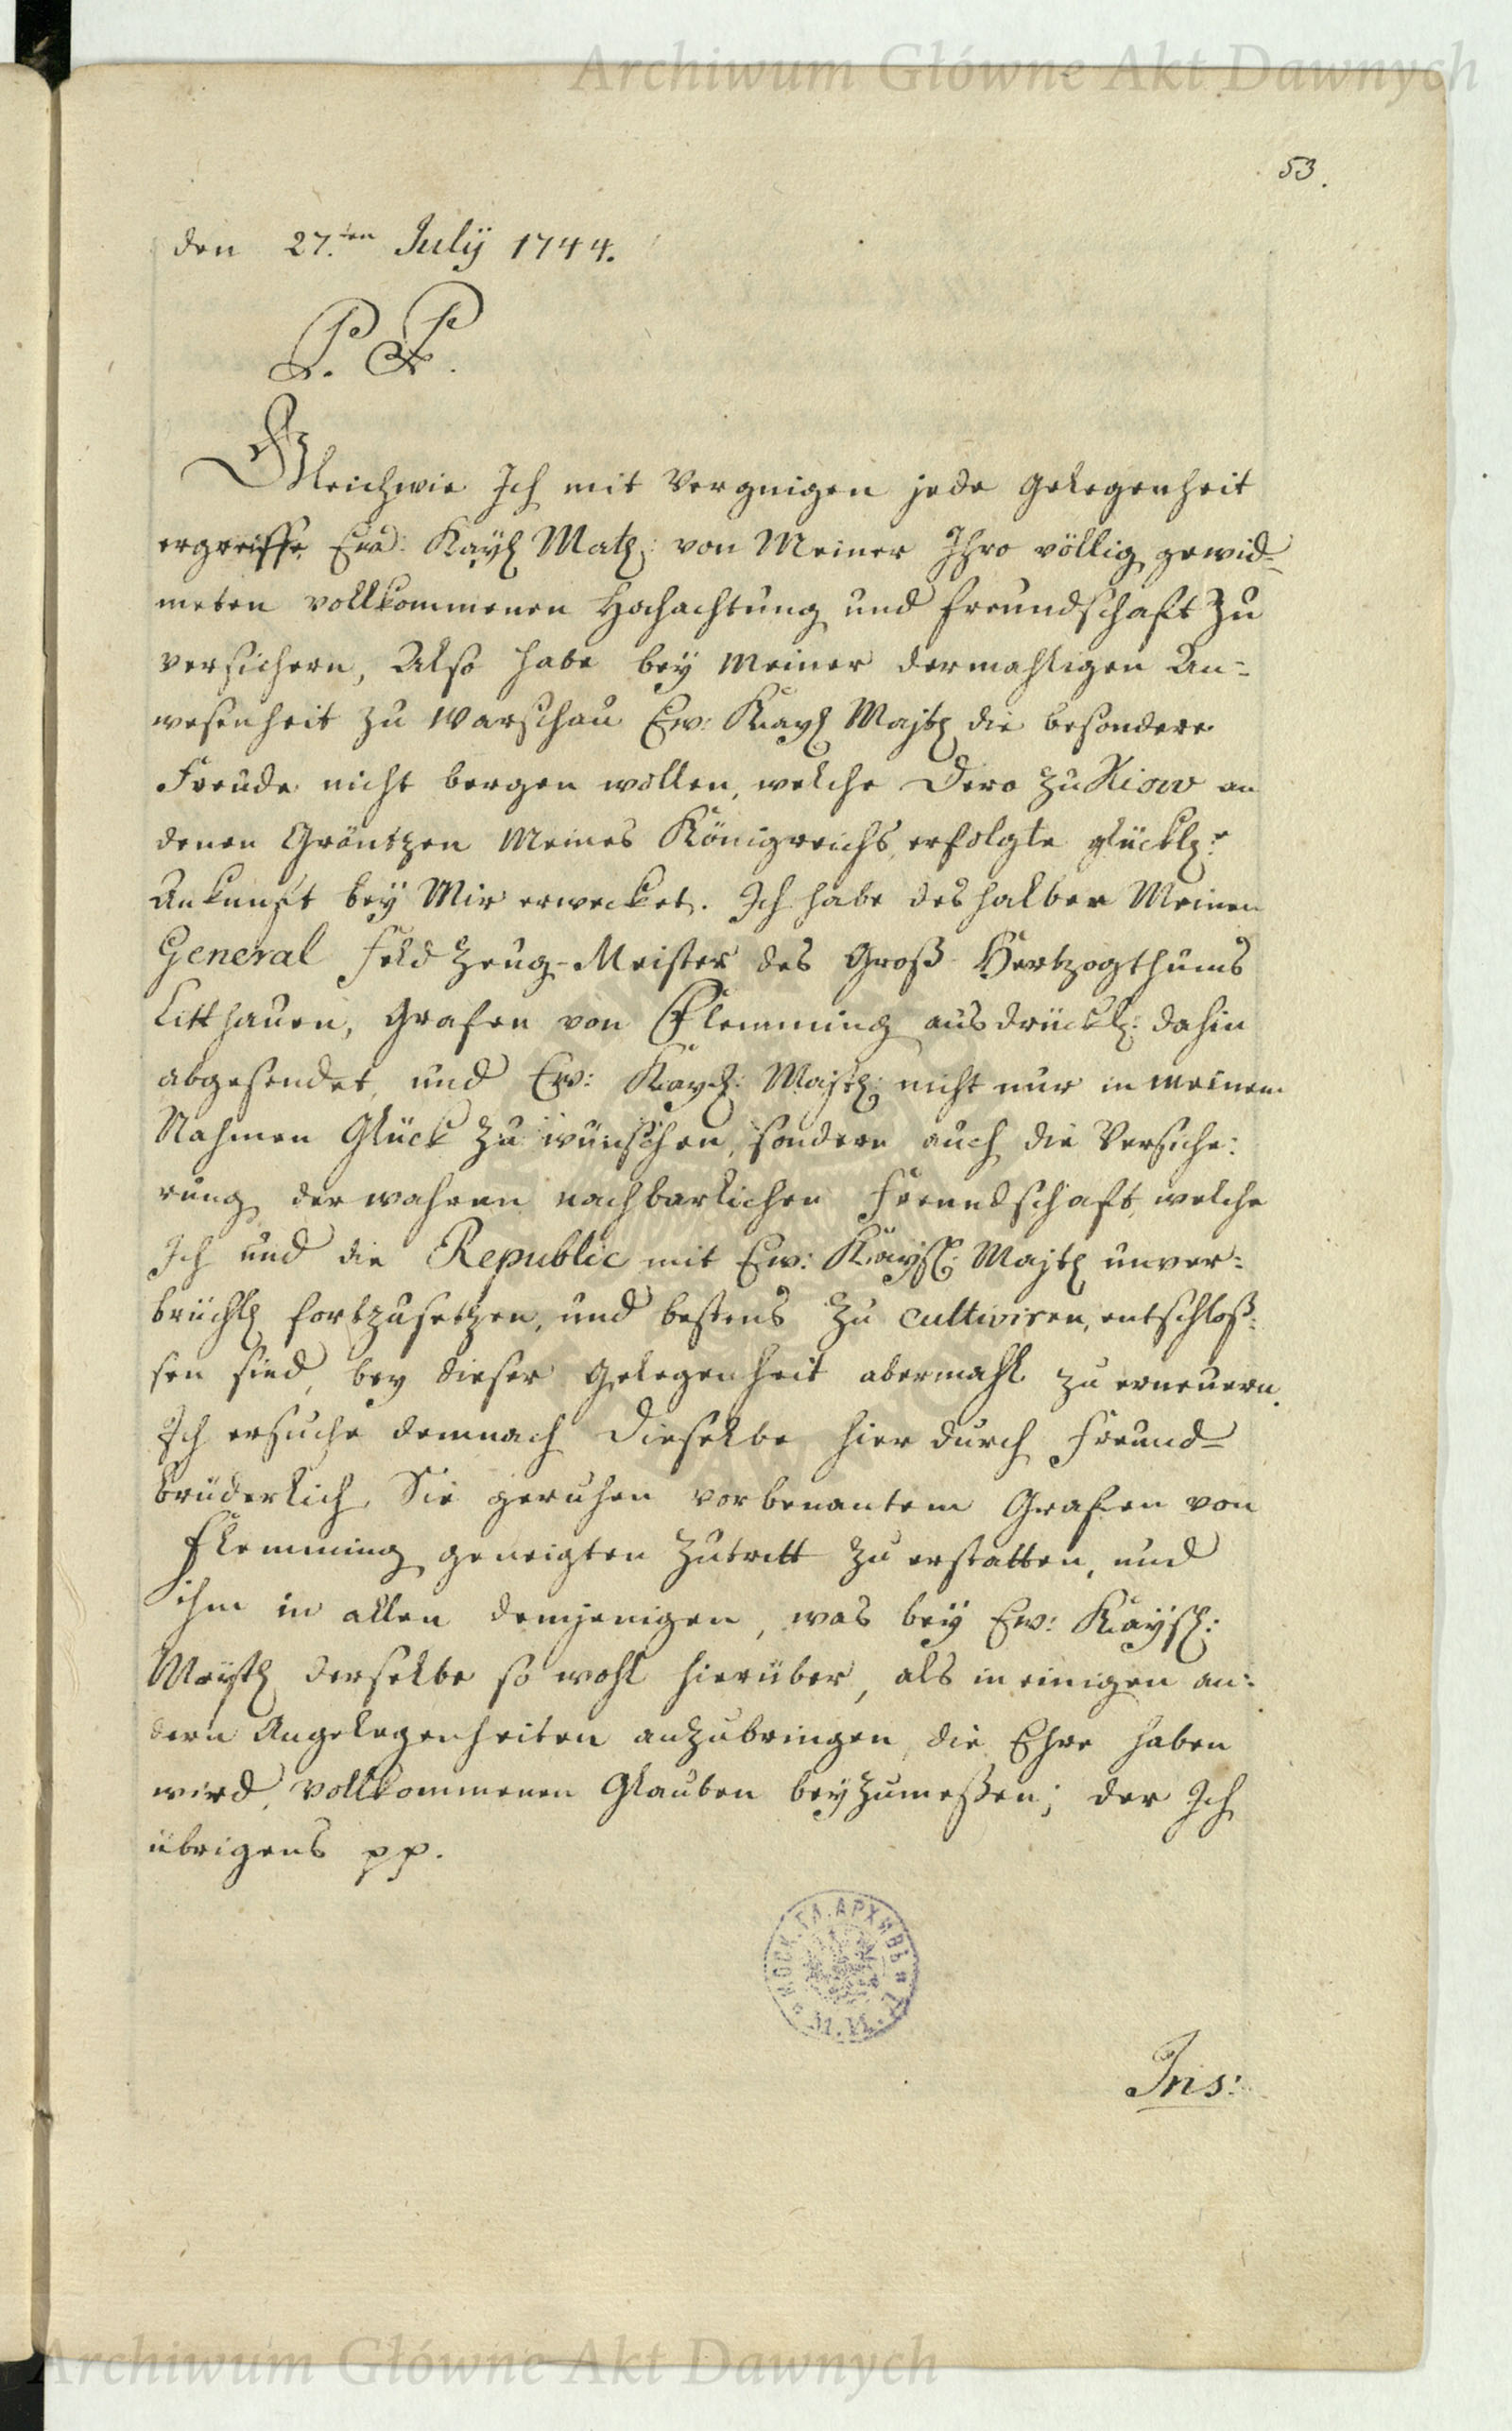 Archiwum Główne Akt Dawnych
53.
den 27.ten Julÿ 1744.
P. P.
Gleichwie Ich mit Vergnügen jede Gelegenheit
ergreiffe Ew: Kayl Matl: von Meiner Ihro völlig gewid-
meten vollkommenen Hochachtung und Freundschaft zu
versichern, Also habe beÿ Meiner dermahligen An-
wesenheit zu Warschau Ew: Kayl Majtl die besondere
Freude nicht bergen wollen, welche Dero zu Kiow an
denen Gräntzen Meines Königreichs, erfolgte glückl:e
Ankunft beÿ Mir erwecket. Ich habe deshalber Meinen
General Feld Zeug-Meister des Groß Hertzogthums
Litthauen, Grafen von Flemming ausdrückl: dahin
abgesendet, und Ew: Kayl: Majtl: nicht nur in meinem
Nahmen Glück zu wünschen, sondern auch die Versiche:
rung der wahren nachbarlichen Freundschaft, welche
Ich und die Republic mit Ew: Kaysl: Majtl unver:
brüchl fortzusetzen, und bestens zu cultiviren, entschloß:
sen sind, bey dieser Gelegenheit abermahl zu erneuern.
Ich ersuche demnach Dieselbe hier durch Freund-
brüderlich, Sie geruhen vorbenantem Grafen von
Flemming geneigten Zutritt zu erstatten, und
ihm in allen demjenigen, was beÿ Ew: Kaÿsl:
Maÿtl derselbe so wohl hierüber, als in einigen an:
dern Angelegenheiten anzubringen, die Ehre haben
wird, vollkommenen Glauben beÿzumeßen; der Ich
übrigens pp.
МОСК. ГЛ. АРХИВЪ
М.И.Д.
Ins:
Archiwum Główne Akt Dawnych